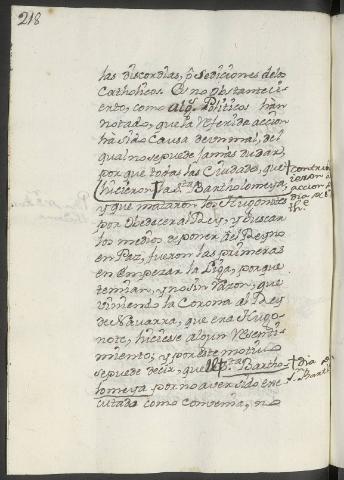 218
las discordias, ô sediciones delos
Catholicos. Es no obstante ci-
erto, como algs. Politicos han
notado, que la referida accion
ha sido causa de un mal, del
qual no se puede jamàs dudar,
por que todas las Ciudades, que
hicieron la Sta. Bartholomeya,
y que mataron los Hugonotes
por obedecer al Rey, y buscar
los medios de poner el Reyno
en Paz, fueron las primeras
en empezar la Liga, porque
temian, y no sin razon, que
viniendo la Corona al Rey
de Navarra, que era Hugo-
note, hiciese algun resenti-
miento, y por este motivo
se puede decir, que la Sta. Bartho-
lomeya por no aver sido exe-
cutada como convenia, no
accion
dia